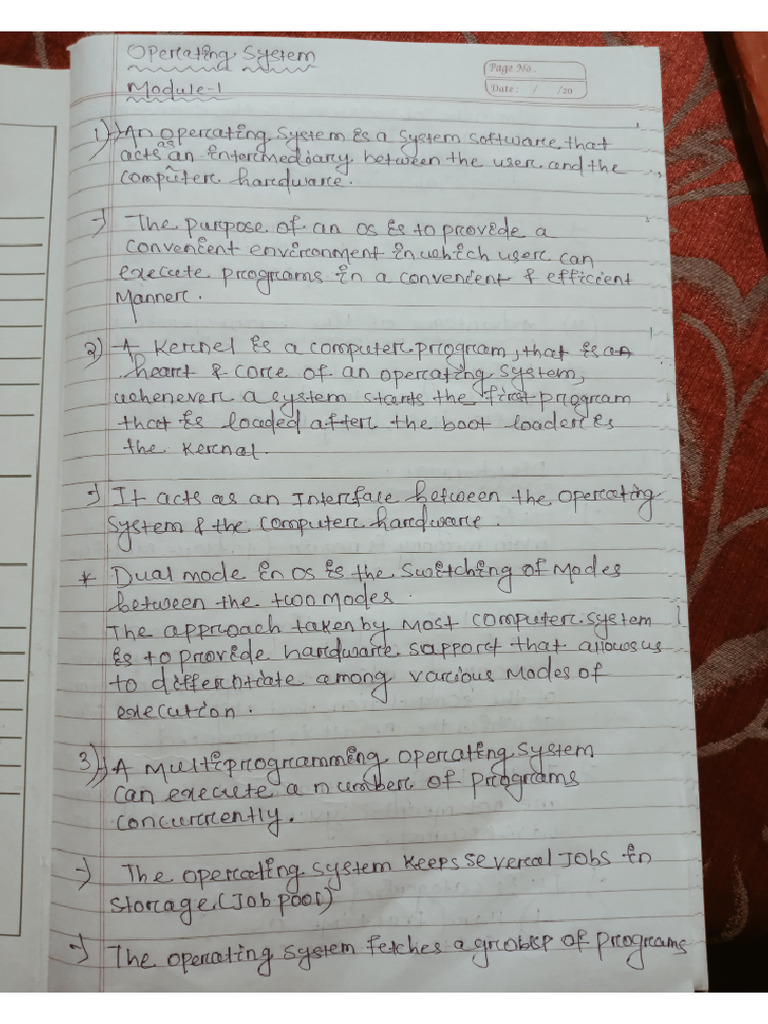 Operating System
Page No.
Date: / /20
Module-1
1) → An operating system is a system software that
acts as an intermediary between the user and the
computer hardware.
→ The purpose of an OS is to provide a
convenient environment in which user can
execute programs in a convenient & efficient
Manner.
2) → A Kernel is a computer program, that is a
heart & core of an operating system,
whenever a system starts the first program
that is loaded after the boot loader is
the Kernal.
→ It acts as an Interface between the operating
system & the computer hardware.
* Dual mode in OS is the switching of Modes
between the two Modes.
The approach taken by Most computer system
is to provide hardware support that allows us
to differentiate among various Modes of
execution.
3) → A Multiprogramming operating system
can execute a number of programs
concurrently.
→ The operating system keeps several Jobs in
Storage (Job pool)
→ The operating system fetches a of programs